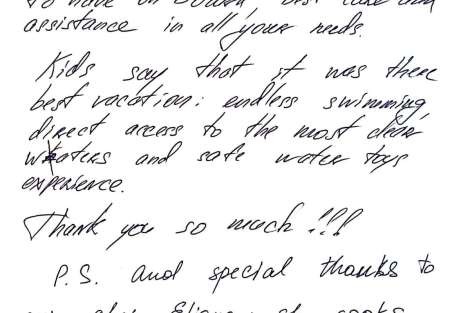 to have on board, best care and
assistance in all your needs.
Kids say that it was there
best vacation: endless swimming,
direct access to the most clear
waters and safe water toys
experience.
Thank you so much!!!
P.S. And special thanks to